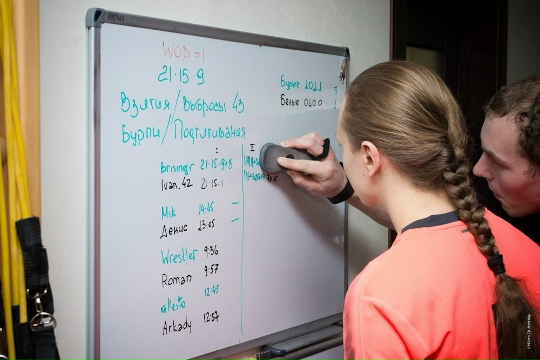 WOD-1
21-15-9
Взятия/Выбросы 43
Бурпи/Подтягивания
Бурые 1011
Белые 0100
I
II
brisingr 21-15-9+8
Ivan.42 21-15-1
Mik 14:05
Денис 13:05
Wrestler 9:36
Roman 9:57
12:45
Arkady 12:57